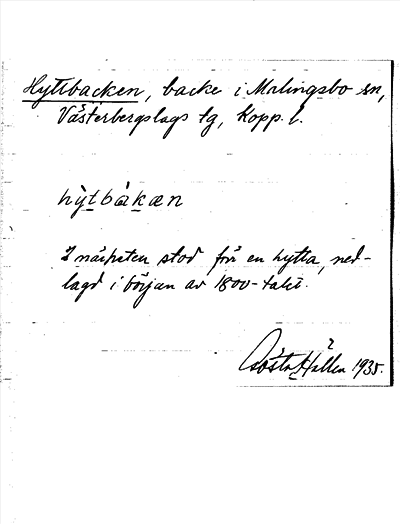 Hyttbacken, backe i Malingsbo sn,
Västerbergslags tg, Kopp. l.
hỳtbàkæn
I närheten stod förr en hytta, ned-
lagd i början av 1800-talet.
Gösta Hallén 1935.